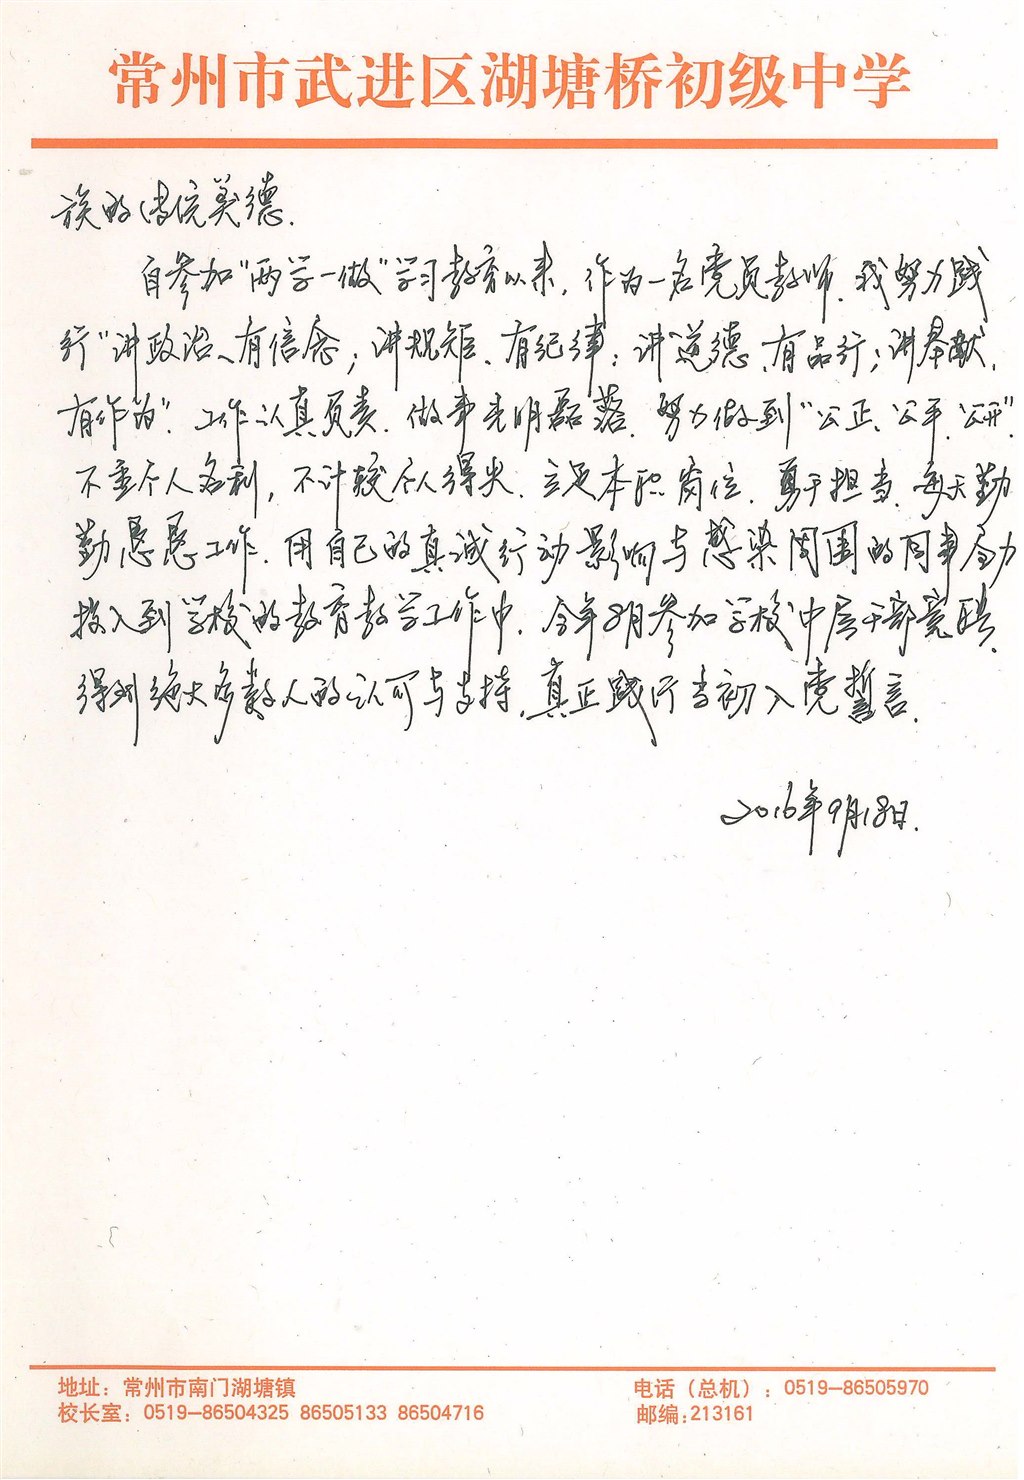 常州市武进区湖塘桥初级中学
族的传统美德.
自参加“两学一做”学习教育以来,作为一名党员教师.我努力践
行“讲政治、有信念;讲规矩、有纪律;讲道德、有品行;讲奉献、
有作为”.工作认真负责.做事光明磊落.努力做到“公正、公平、公开”.
不重个人名利,不计较个人得失.立足本职岗位.勇于担当.每天勤
勤恳恳工作.用自己的真诚行动影响与感染周围的同事全力
投入到学校的教育教学工作中.今年8月参加学校中层干部竞聘.
得到绝大多数人的认可与支持,真正践行当初入党誓言.
2016年9月18日.
地址:常州市南门湖塘镇
电话(总机):0519-86505970
校长室:0519-86504325 86505133 86504716
邮编:213161